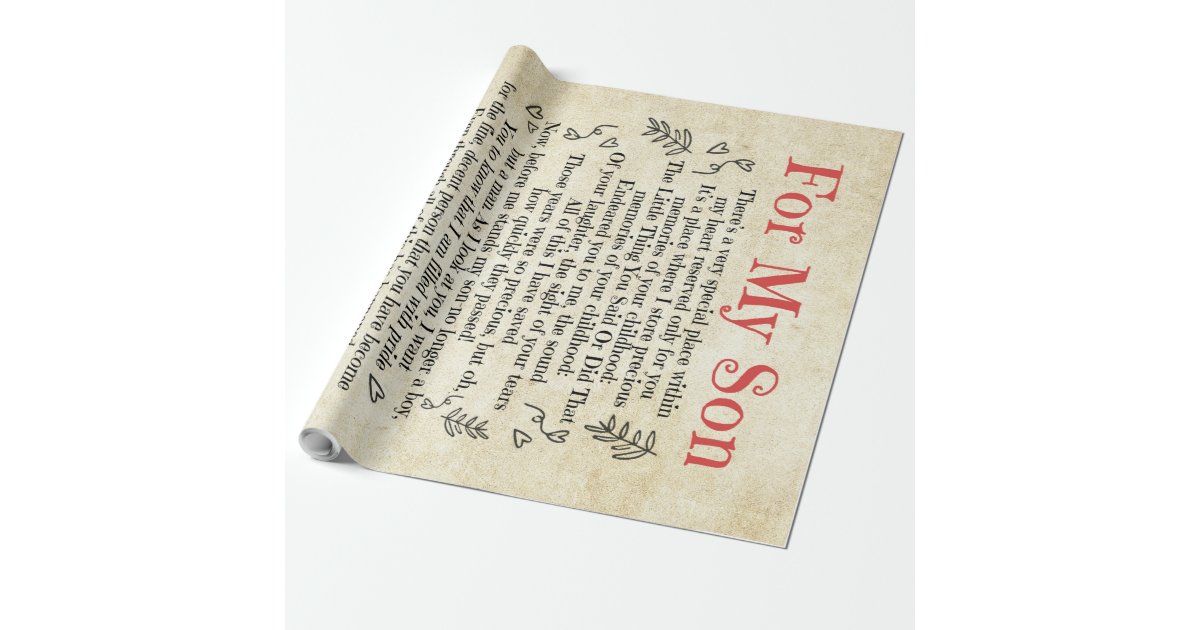 For My Son
There's a very special place within
my heart reserved only for you
It's a place where I store precious
memories of your childhood:
The Little Thing You Said Or Did That
Endeared you to me,
memories of your childhood:
Of your laughter, the sound
All of this I have saved
Those years were so precious, but oh,
how quickly they passed!
Now, before me stands my son-no longer a boy,
but a man. As I look at you, I want
You to know that I am filled with pride
for the fine, decent person that you have become